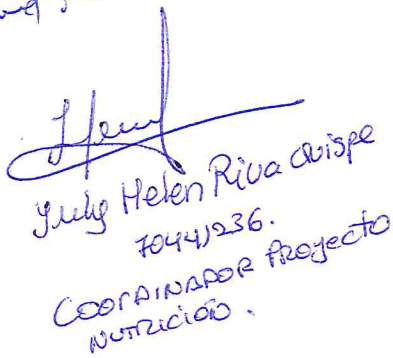 July Helen Riva Quispe
70441236.
COORDINADOR PROYECTO
NUTRICIÓN.